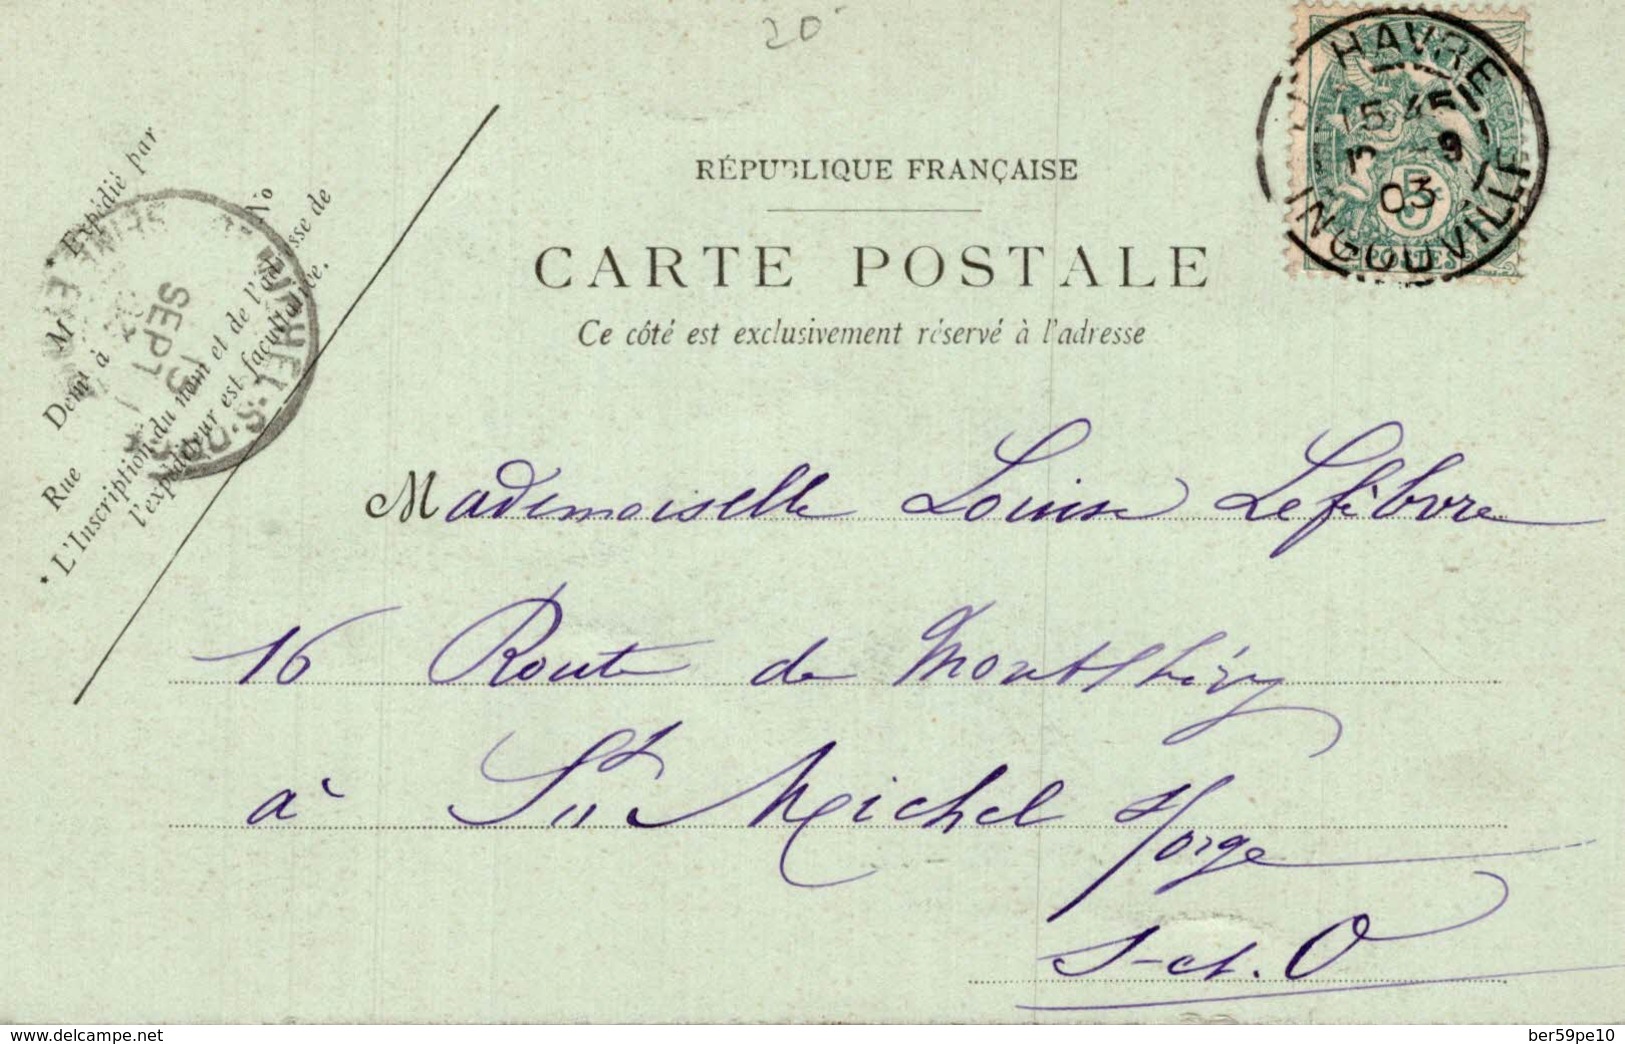 20
HAVRE
15 45
03
INGOUVILLE
5
POSTES
RÉPUBLIQUE FRANÇAISE
CARTE POSTALE
Ce côté est exclusivement réservé à l'adresse
* Expédié par
M
Demt à
Rue No
* L'Inscription du nom et de l'adresse de
l'expéditeur est facultative.
SEPT
Mademoiselle Louise Lefèbvre
16 Route de Montlhéry
à St Michel s/orge
S-et-O
www.delcampe.net
ber59pe10